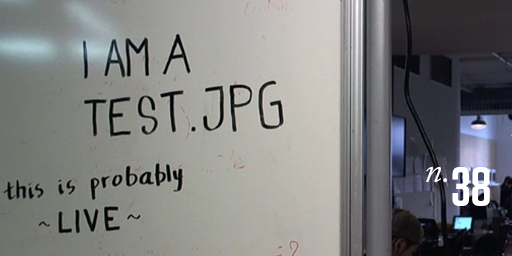 I AM A
TEST.JPG
this is probably
~LIVE~
n.38